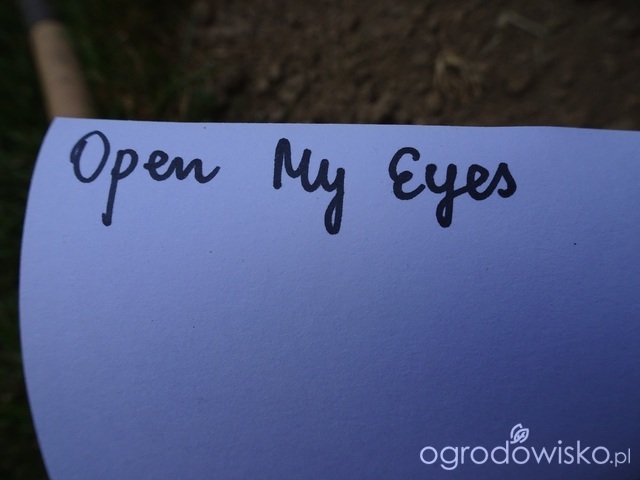 Open My Eyes
ogrodowisko.pl